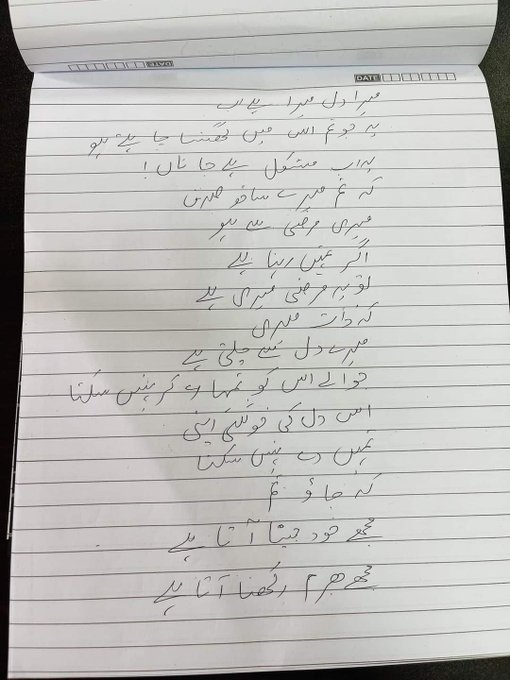 DATE
DATE
میرا دل میرا ہے اب
یہ جو تم اس میں گھسنا چاہتے ہو
یہ اب مشکل ہے جاناں!
کہ تم میرے ساتھ
میری مرضی سے ہو
اگر تمہیں رہنا ہے
تو یہ مرضی میری ہے
کہ ذات میری
میرے دل سے چلتی ہے
حوالے اس کو تمہارے کر نہیں سکتا
اس دل کی اپنی
تمہیں دے نہیں سکتا
کہ جاؤ تم
مجھے خود جینا آتا ہے
مجھے بھرم رکھنا آتا ہے